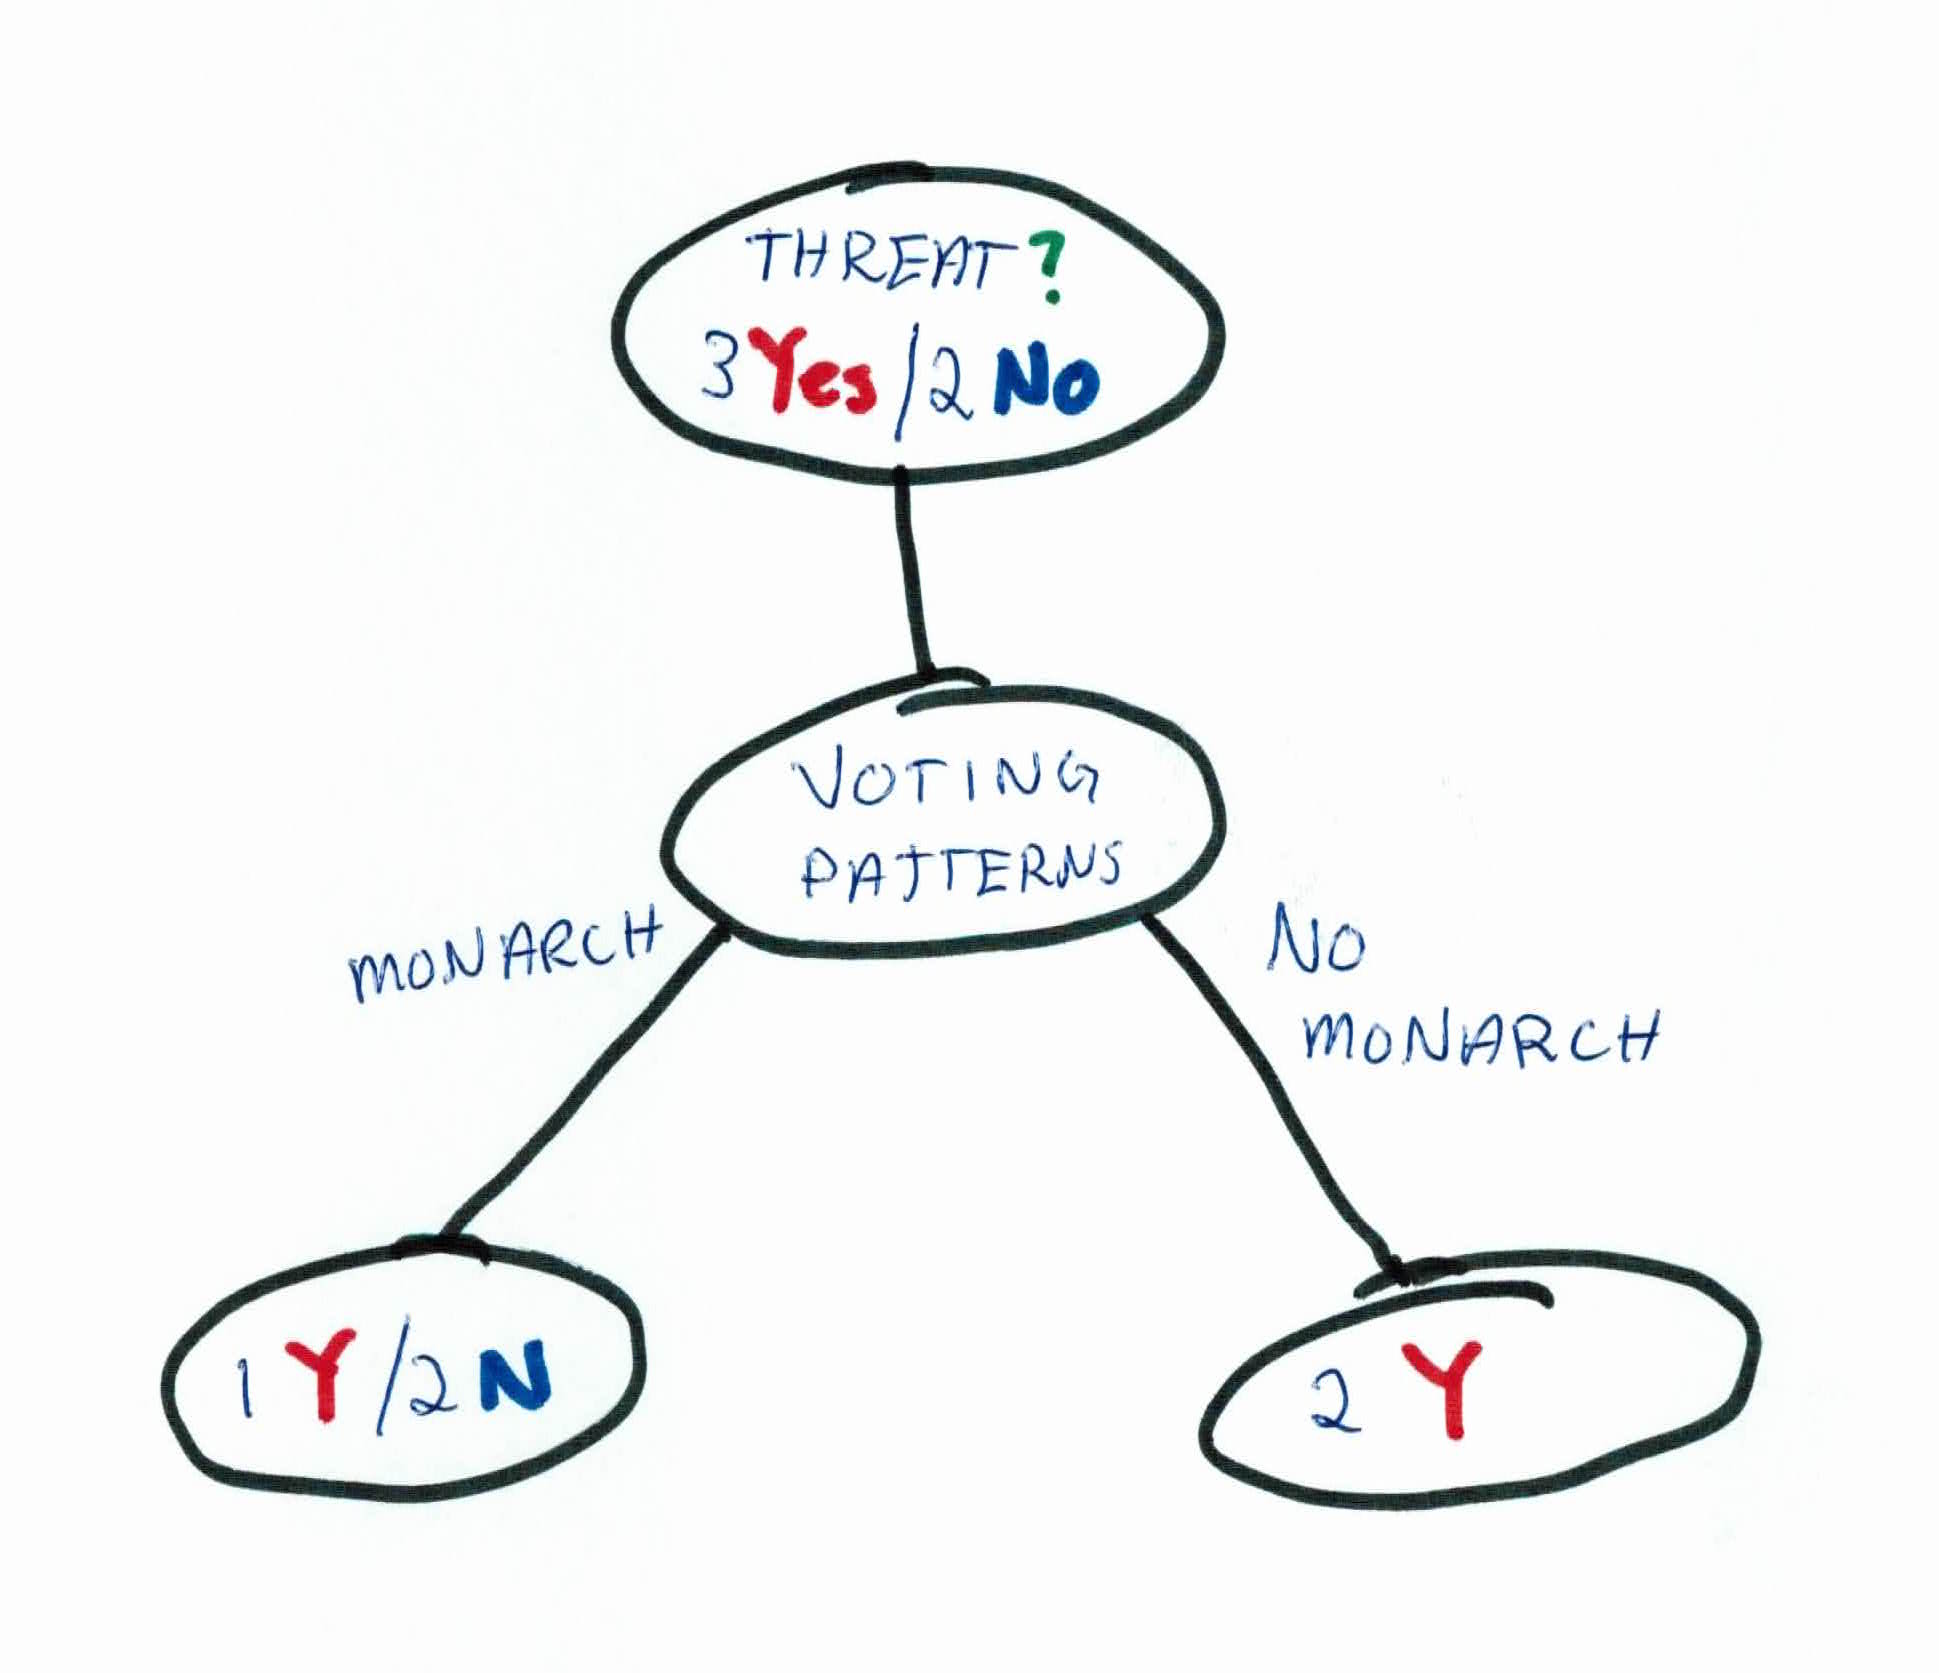 THREAT?
3 Yes / 2 No
VOTING
PATTERNS
MONARCH
NO
MONARCH
1 Y / 2 N
2 Y